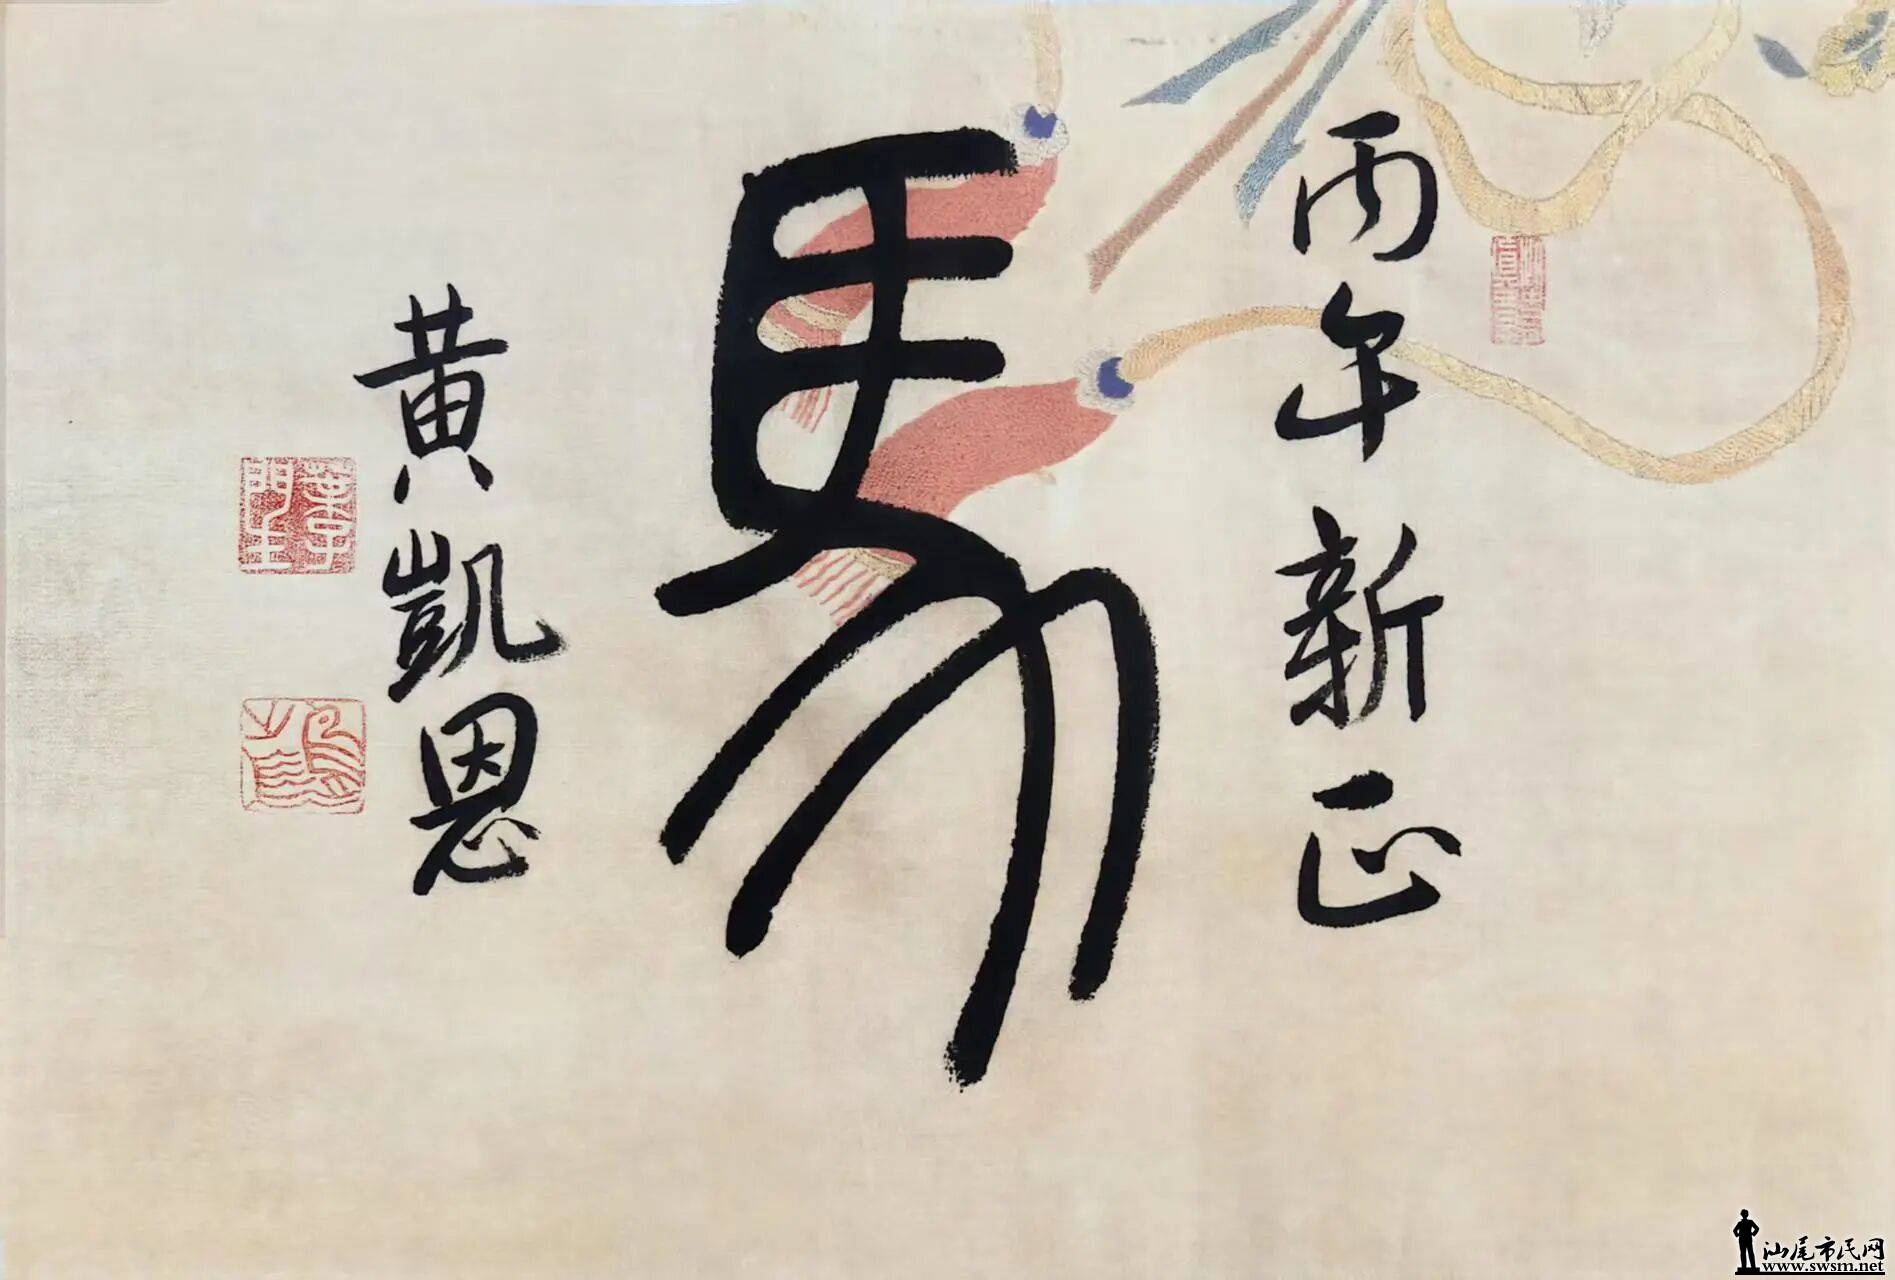 丙午新正
馬
黄凱恩
汕尾市民网
www.swsm.net